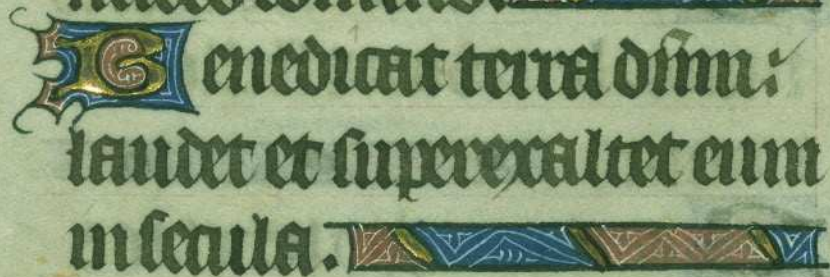 Benedicat terra dñm:
laudet et superexaltet eum
in secula.